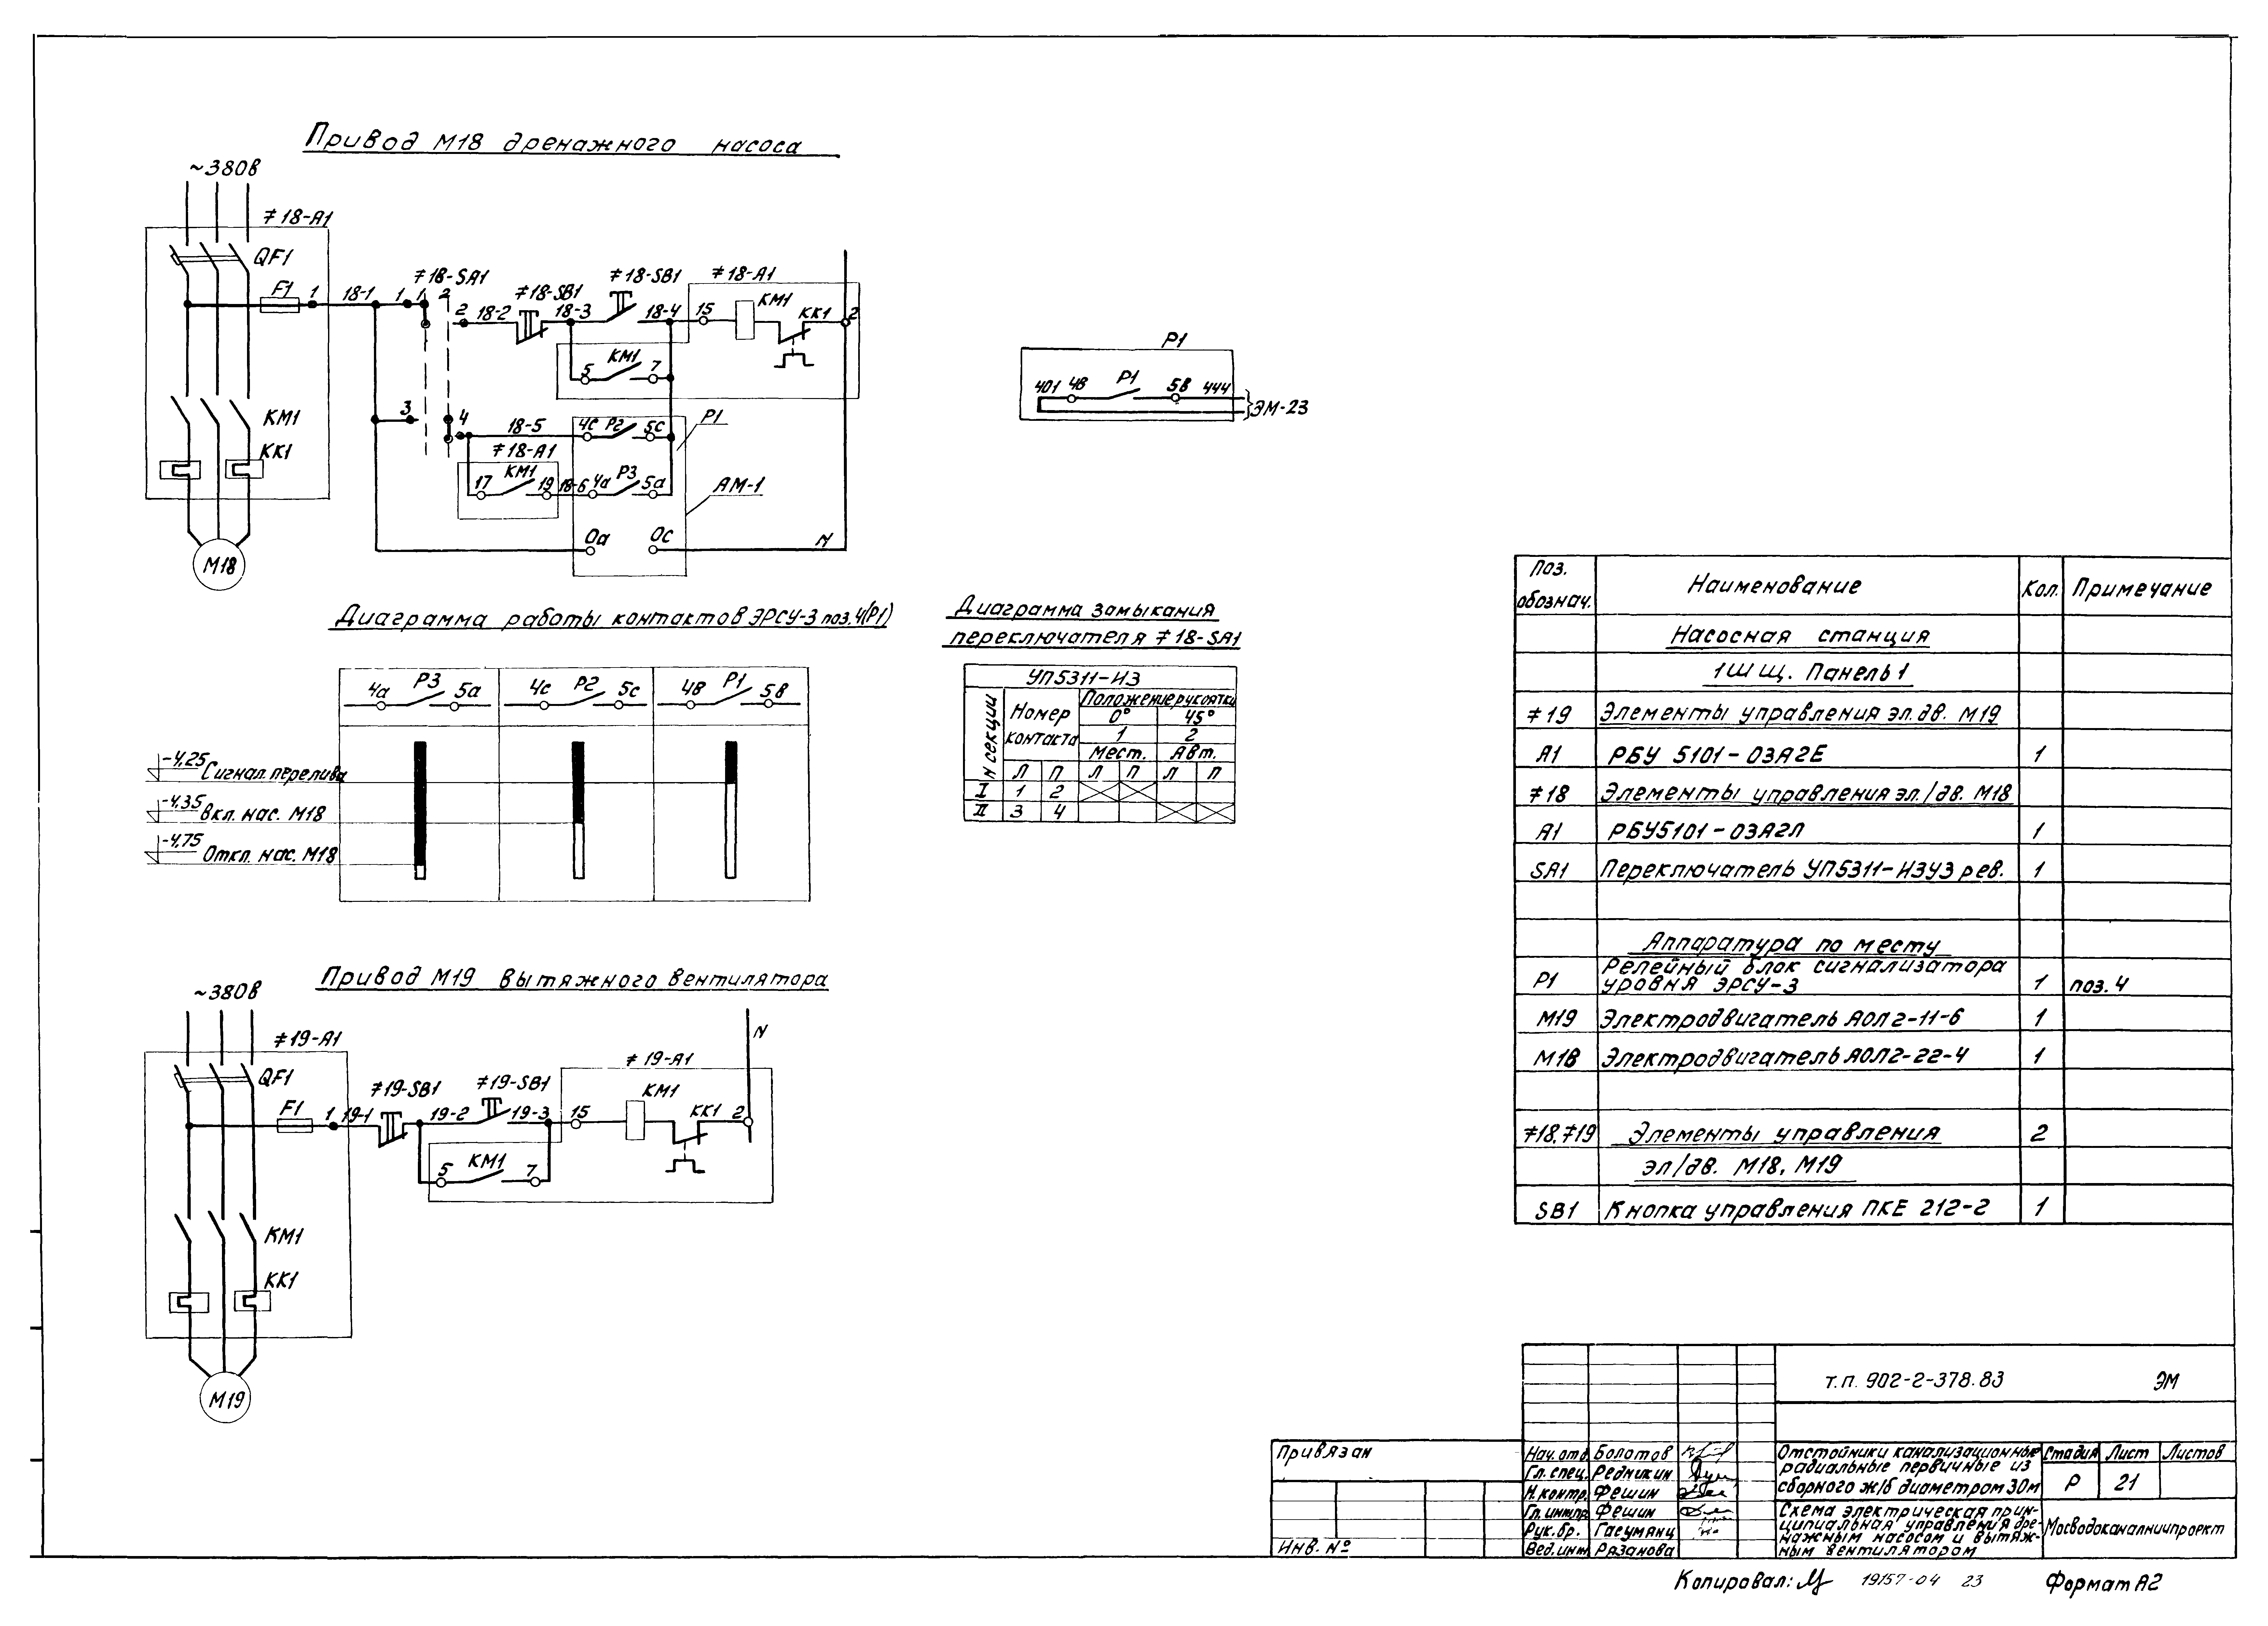 Привод М18 дренажного насоса
~380в
≠18-А1
QF1
F1
1
18-1
≠18-SA1
1
1
2
2
18-2
≠18-SB1
18-3
≠18-SB1
18-4
≠18-А1
15
КМ1
КК1
2
5
КМ1
7
КМ1
КК1
3
4
18-5
4с
Р2
5с
Р1
≠18-А1
17
КМ1
19
18-6
4а
Р3
5а
АМ-1
Оа
Ос
N
М18
Р1
401
4в
Р1
5в
444
ЭМ-23
Диаграмма работы контактов ЭРСУ-3 поз.4(Р1)
4а Р3 5а
4с Р2 5с
4в Р1 5в
-4,25 Сигнал. перелива
-4,35 Вкл. нас. М18
-4,75 Откл. нас. М18
Диаграмма замыкания
переключателя ≠18-SA1
УП5311-И3
N секции
Номер
контакта
Положение рукоятки
0° 45°
1 2
Мест. Авт.
Л П Л П Л П
I 1 2
II 3 4
Привод М19 вытяжного вентилятора
~380в
≠19-А1
QF1
F1
1
19-1
≠19-SB1
19-2
≠19-SB1
19-3
≠19-А1
15
КМ1
КК1
2
N
5
КМ1
7
КМ1
КК1
М19
Поз. обознач. Наименование Кол. Примечание
Насосная станция
1Ш щ. Панель 1
≠19 Элементы управления эл.дв. М19
А1 РБУ 5101-03А2Е 1
≠18 Элементы управления эл/дв. М18
А1 РБУ5101-03А2Л 1
SA1 Переключатель УП5311-И3У3 рев. 1
Аппаратура по месту
Р1 Релейный блок сигнализатора уровня ЭРСУ-3 1 поз. 4
М19 Электродвигатель АОЛ2-11-6 1
М18 Электродвигатель АОЛ2-22-4 1
≠18,≠19 Элементы управления 2
эл/дв. М18, М19
SB1 Кнопка управления ПКЕ 212-2 1
т.п. 902-2-378.83 ЭМ
Привязан
Инв. №
Нач. отд. Болотов
Гл. спец. Редникин
Н. контр. Фешин
Гл. инж.пр. Фешин
Рук. бр. Гасумянц
Вед. инж. Рязанова
Отстойники канализационные
радиальные первичные из
сборного ж/б диаметром 30м
Стадия Лист Листов
Р 21
Схема электрическая прин-
ципиальная управления дре-
нажным насосом и вытяж-
ным вентилятором
Мосводоканалниипроект
Копировал:
19157-04 23
Формат А2